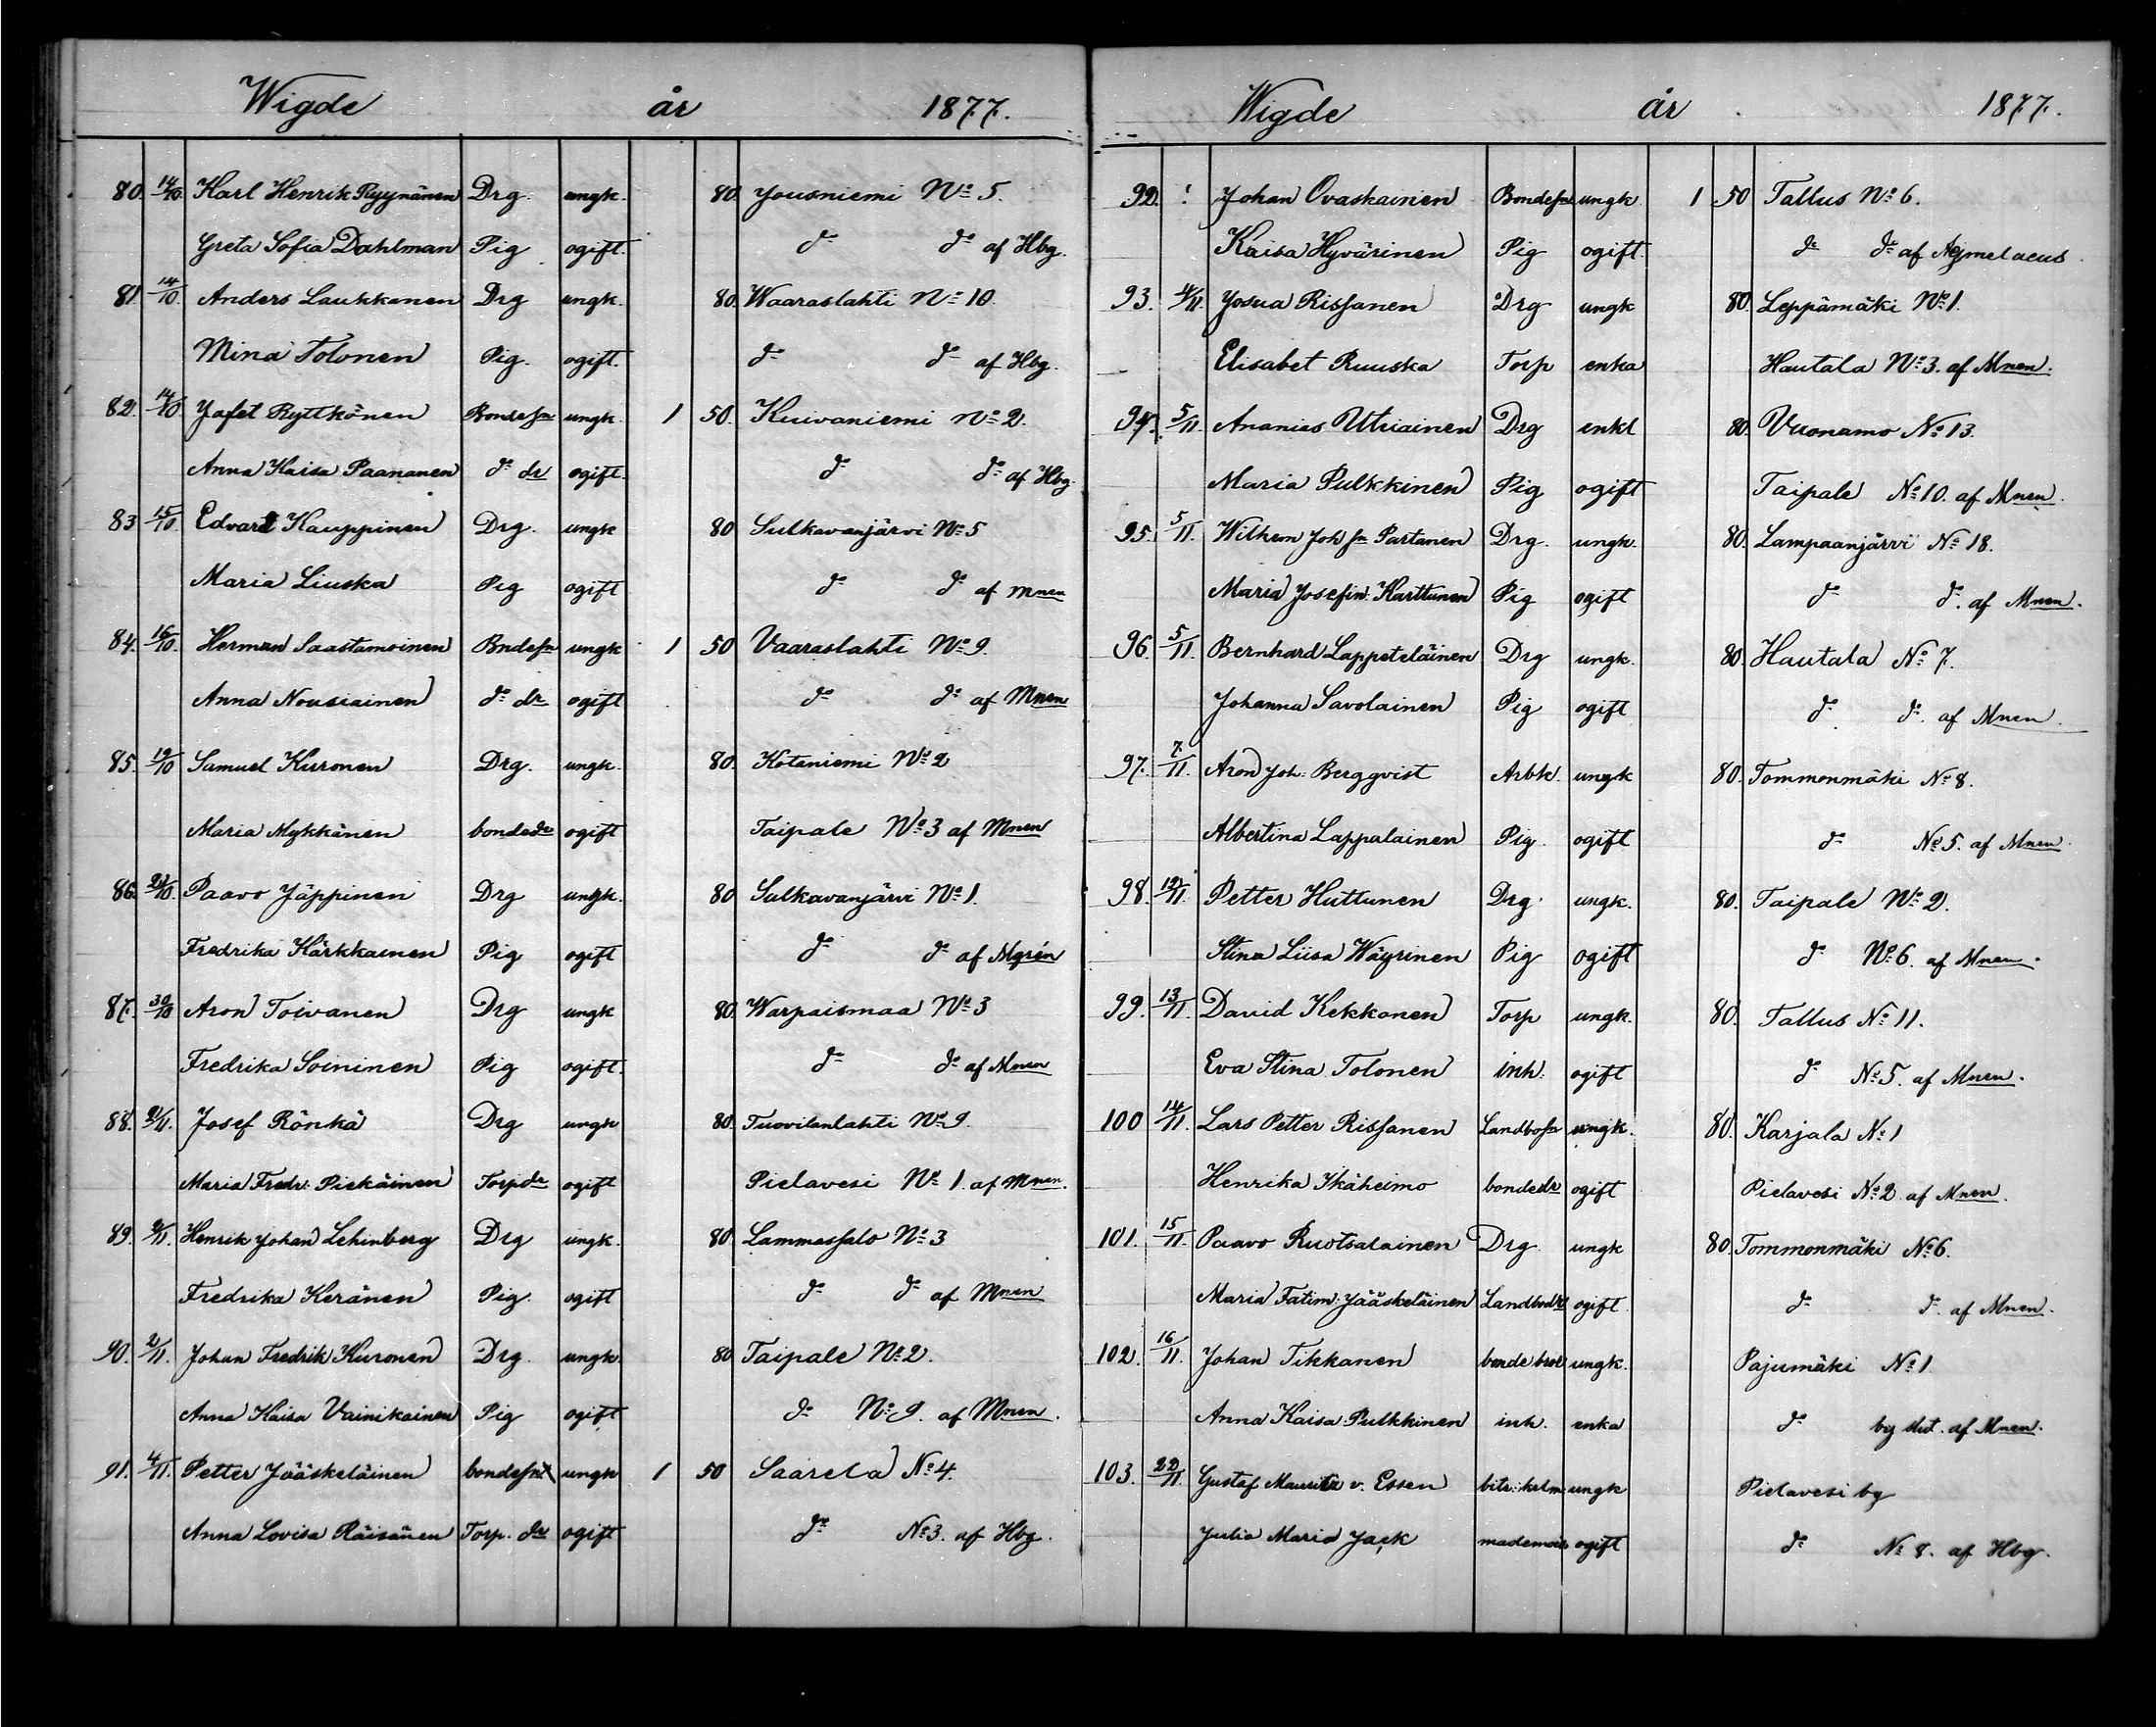 Wigde år 1877.
80. 14/10. Karl Henrik Ryynänen Drg. ungk. 80. Jousniemi No 5.
Greta Sofia Dahlman Pig ogift. do do af Hbg.
81. 14/10. Anders Laukkanen Drg ungk. 80. Waaraslahti No 10.
Mina Tolonen Pig. ogift. do do af Hbg.
82. 14/10 Jafet Rytkönen Bondesn ungk. 1 50. Kuivaniemi No 2.
Anna Kaisa Paananen do dr ogift. do do af Hbg.
83 15/10 Edvard Kauppinen Drg. ungk 80 Sulkavanjärvi No 5
Maria Liuska Pig ogift do do af Mnen
84. 16/10. Herman Saastamoinen Bndesn ungk 1 50 Vaaraslahti No 9.
Anna Nousiainen do dr ogift do do af Mnen
85. 19/10 Samuel Kuronen Drg. ungk. 80. Kotaniemi No 2
Maria Mykkänen bondedr ogift Taipale No 3 af Mnen
86. 21/10 Paavo Jäppinen Drg ungk. 80 Sulkavanjärvi No 1.
Fredrika Kärkkainen Pig ogift do do af Mgrén
87. 30/10 Aron Toivanen Drg ungk 80 Warpaismaa No 3
Fredrika Soininen Pig ogift. do do af Mnen
88. 2/11. Josef Rönkä Drg ungk 80. Tuovilanlahti No 9.
Maria Fredr: Piekäinen Torpdr ogift Pielavesi No 1. af Mnen.
89. 2/11. Henrik Johan Lehinberg Drg ungk. 80. Lammassalo No 3
Fredrika Keränen Pig. ogift do do af Mnen
90. 2/11. Johan Fredrik Kuronen Drg. ungk. 80 Taipale No 2.
Anna Kaisa Vainikainen Pig ogift do No 9. af Mnen.
91. 4/11. Petter Jääskeläinen bondesn ungk 1 50 Saarela No 4.
Anna Lovisa Räisänen Torp. dr ogift do No 3. af Hbg.
Wigde år 1877.
92. Johan Ovaskainen Bondesn ungk. 1 50 Tallus No 6.
Kaisa Hyvärinen Pig ogift. do do af Aejmelaeus.
93. 4/11. Josua Rissanen Drg ungk 80. Leppämäki No 1.
Elisabet Ruuska Torp enka Hautala No 3. af Mnen.
94. 5/11. Ananias Utriainen Drg enkl 80. Vuonamo No 13.
Maria Pulkkinen Pig ogift Taipale No 10. af Mnen.
95. 5/11. Wilhrm Joh sn Partanen Drg. ungk. 80. Lampaanjärvi No 18.
Maria Josefin: Karttunen Pig ogift do do. af Mnen.
96. 5/11. Bernhard Lappeteläinen Drg ungk. 80. Hautala No 7.
Johanna Savolainen Pig ogift do do. af Mnen.
97. 7/11. Aron Joh: Bergqvist Arbk. ungk 80. Tommonmäki No 8.
Albertina Lappalainen Pig. ogift do No 5. af Mnen.
98. 12/11. Petter Huttunen Drg. ungk. 80. Taipale No 2.
Stina Liisa Wäyrinen Pig ogift do No 6. af Mnen.
99. 13/11. David Kekkonen Torp ungk. 80. Tallus No 11.
Eva Stina Tolonen inh. ogift do No 5. af Mnen.
100 14/11. Lars Petter Rissanen Landbosn ungk. 80. Karjala No 1
Henrika Ikäheimo bondedr ogift Pielavesi No 2 af Mnen.
101. 15/11. Paavo Ruotsalainen Drg ungk 80 Tommonmäki No 6.
Maria Fatim: Jääskeläinen Landbodr ogift do do. af Mnen.
102. 16/11. Johan Tikkanen bonde bror ungk. Pajumäki No 1
Anna Kaisa Pulkkinen inh. enka do by af Mnen.
103. 22/11. Gustaf Mauritz v. Essen bitr: ungk Pielavesi by
Julia Maria Jack mademois ogift do No 8. af Hbg.